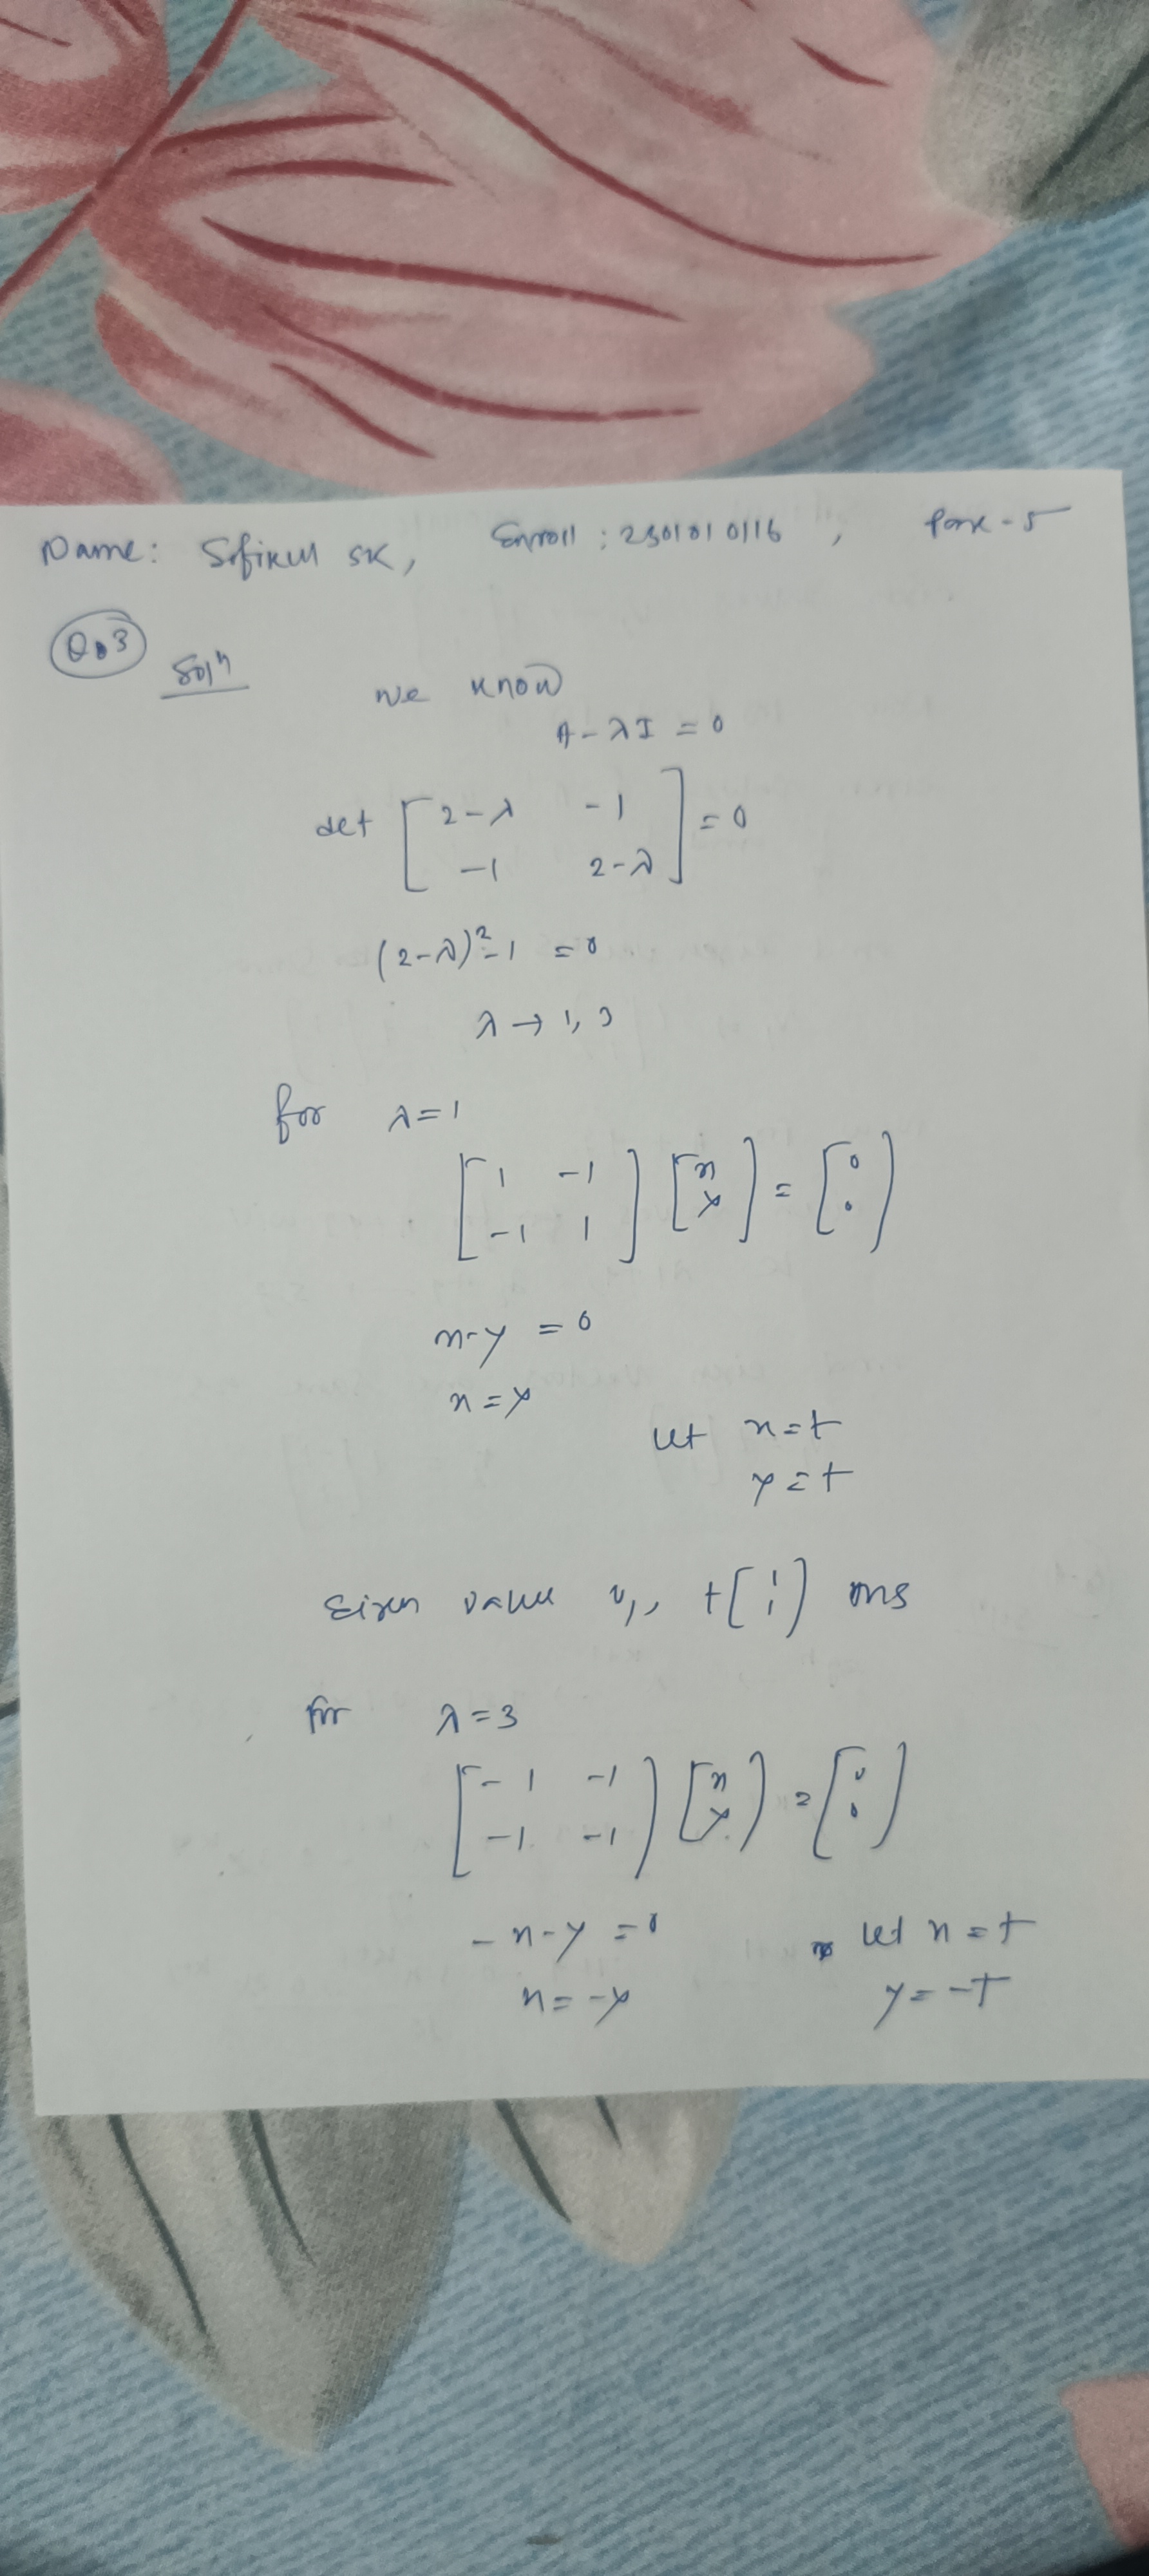 Name: Sofikul SK, Enroll: 2301010116, Page-5
Q.3
Solⁿ We know
A - λI = 0
det [2-λ -1
-1 2-λ] = 0
(2-λ)² - 1 = 0
λ → 1, 3
for λ = 1
[1 -1
-1 1] [x
y] = [0
0]
x - y = 0
x = y
let x = t
y = t
Eigen value v₁, t[1
1] ans
for λ = 3
[-1 -1
-1 -1] [x
y] = [0
0]
- x - y = 0 let x = t
x = -y y = -t